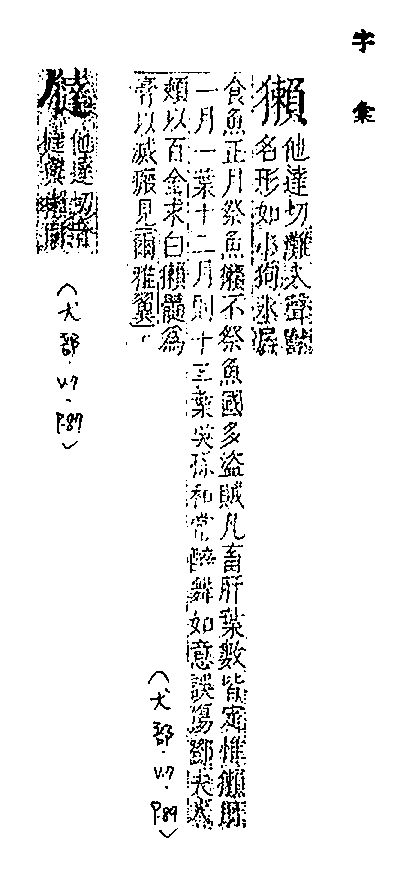 字彙
獺
他達切灘入聲獸
名形如小狗水居
食魚正月祭魚獺不祭魚國多盜賊凡畜肝葉數皆定惟獺肝
一月一葉十二月則十二葉吳孫和常醉舞如意誤傷鄧夫人
頰以百金求白獺髓爲
膏以滅瘢見爾雅翼
(犬部.V.7.P.89)
㺚
他達切音
撻與獺同
(犬部.V.7.P.89)